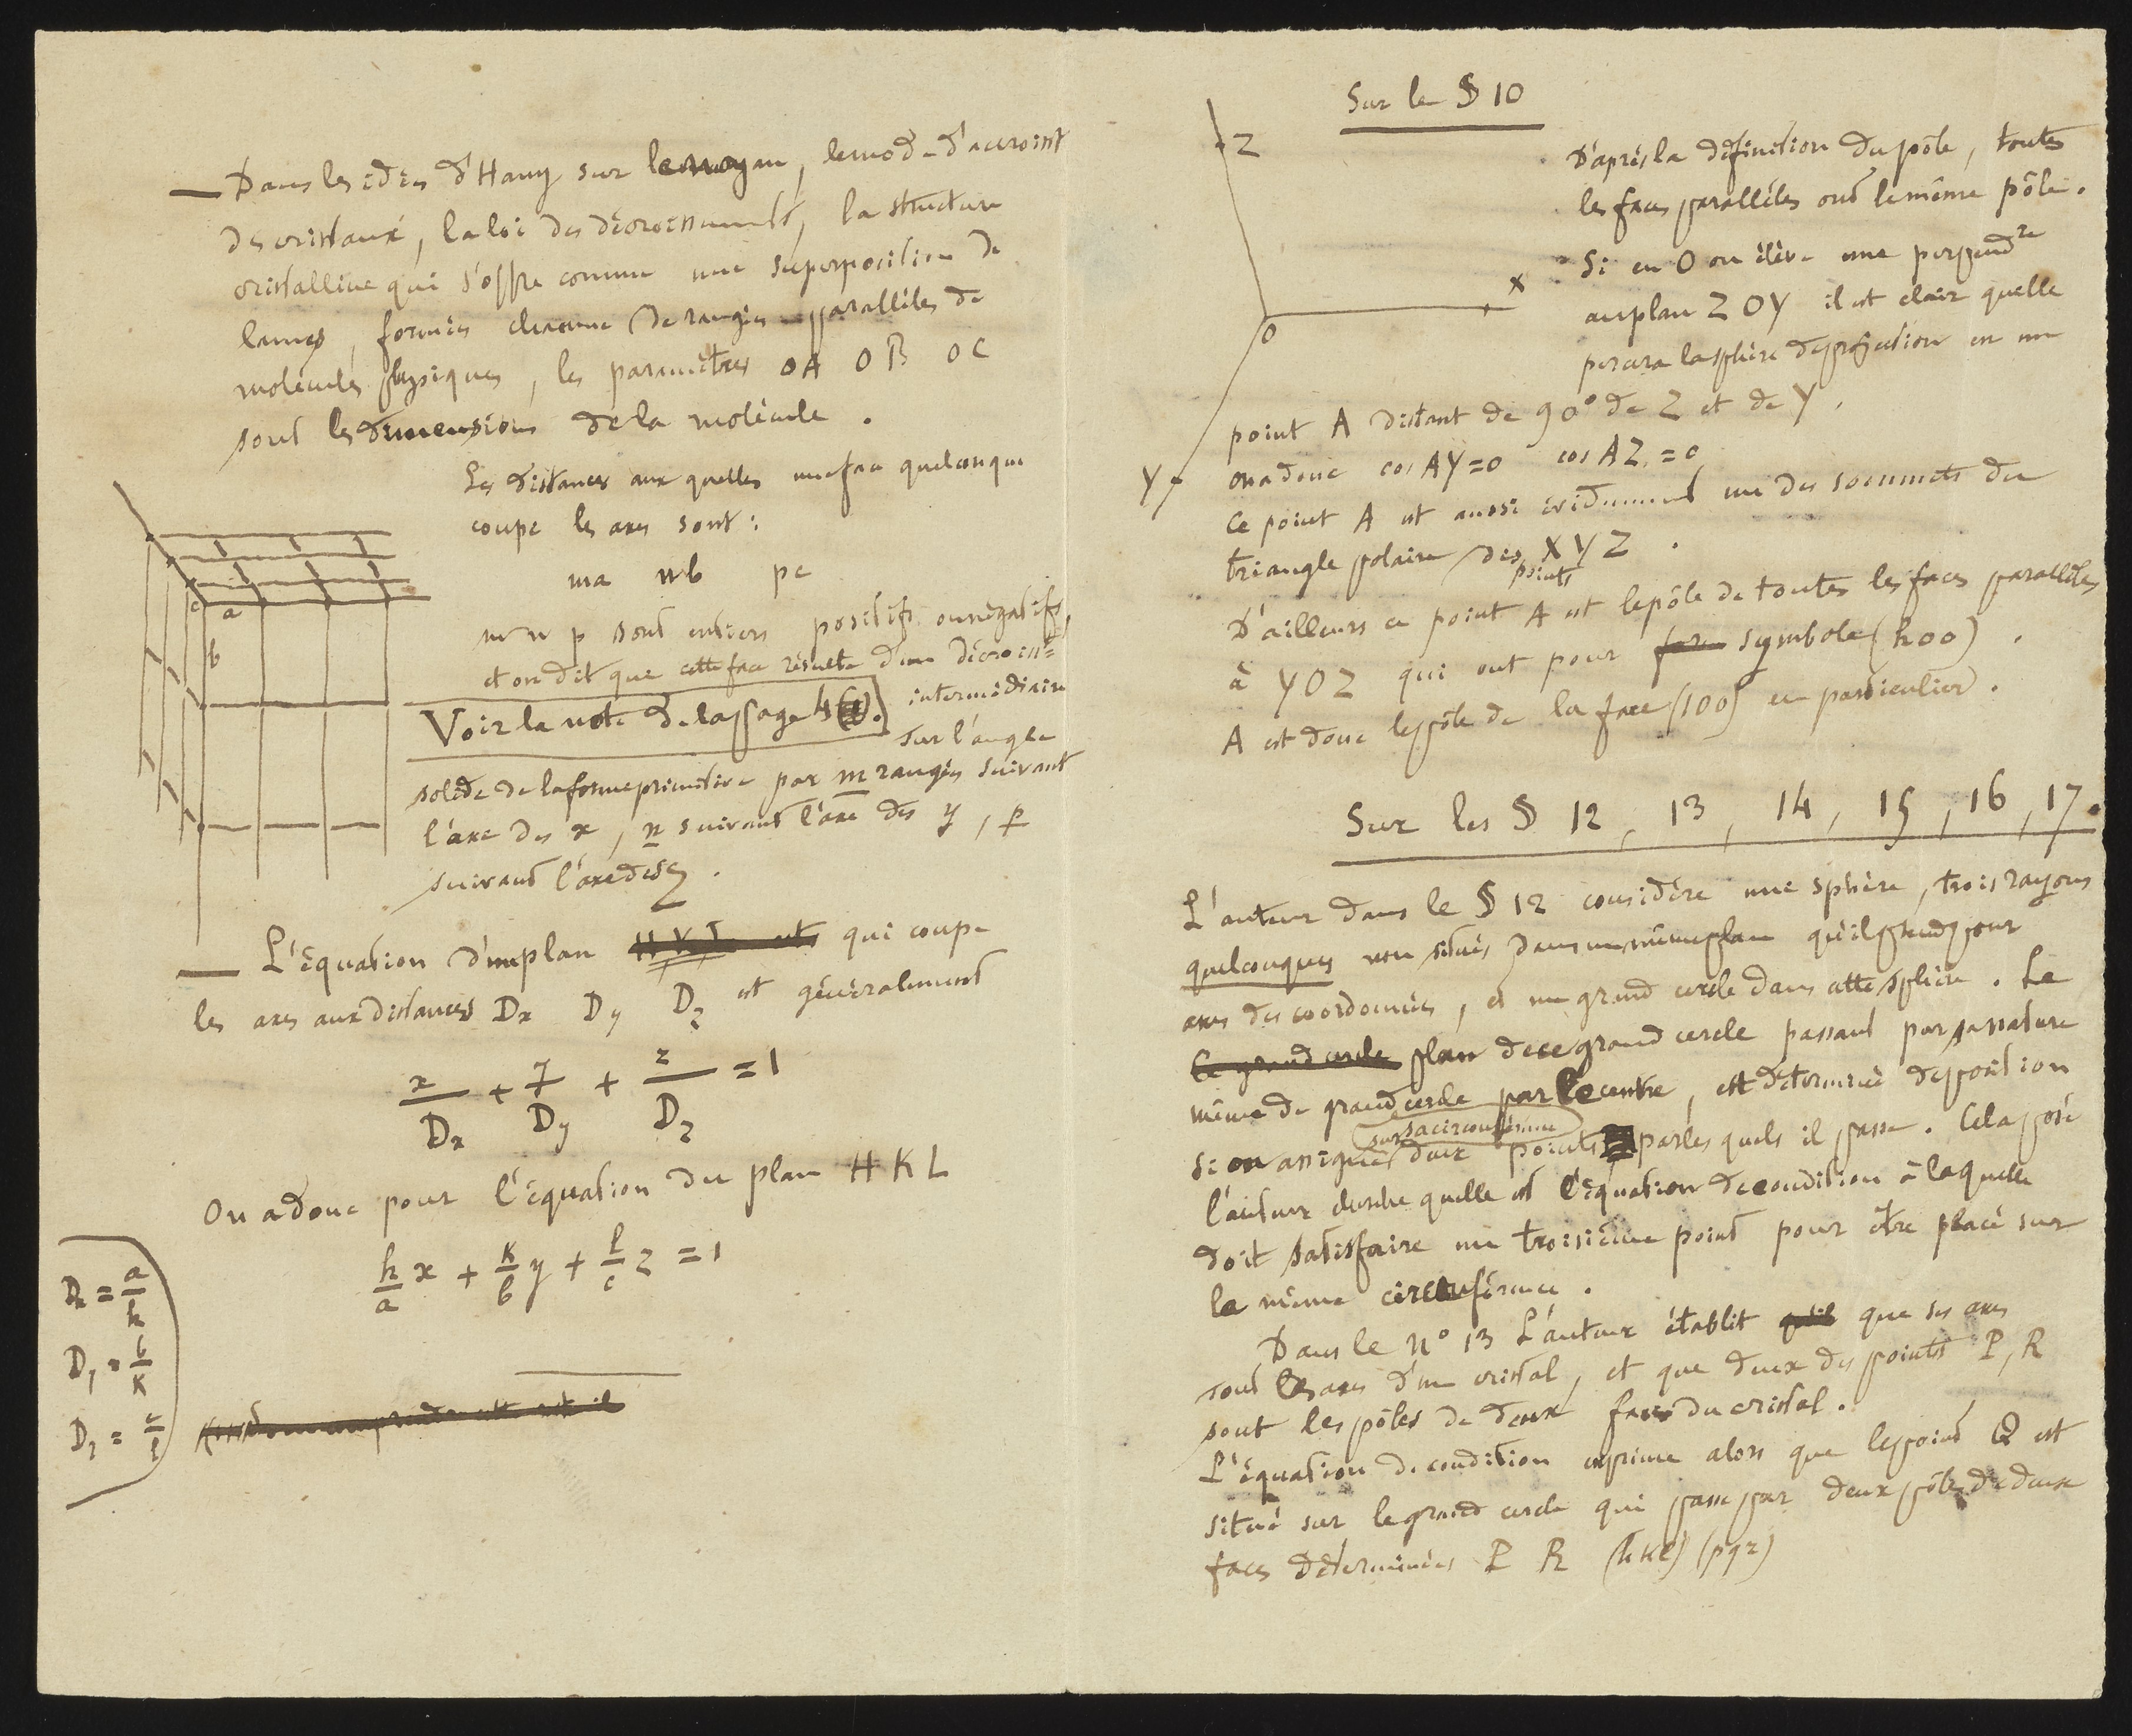 — Dans les idées d'Hauy sur le noyau, le mode d'accroisst
des cristaux, la loi des décroissements, la structure
cristalline qui s'offre comme une superposition de
lames, formées chacune de rangées parallèles de
molécules physiques, les paramètres OA OB OC
sont les dimensions de la molécule.
Les distances aux quelles une face quelconque
coupe les axes sont :
ma nb pc
m n p sont entiers positifs ou négatifs,
et on dit que cette face résulte d'un décroisst
Voir la note de la page 4
intermédiaire
sur l'angle
solide de la forme primitive par m rangées suivant
l'axe des x, n suivant l'axe des y, p
suivant l'axe des z.
c a
b
— L'équation d'un plan HKL qui coupe
les axes aux distances Dx Dy Dz est généralement
x/Dx + y/Dy + z/Dz = 1
On a donc pour l'équation du plan HKL
h/a x + k/b y + l/c z = 1
Dx = a/h
Dy = b/k
Dz = c/l
Sur le § 10
Z
X
O
Y
D'après la définition du pôle, toutes
les faces parallèles ont le même pôle.
Si en O on élève une perpendre
au plan ZOY il est clair quelle
percera la sphère de projection en un
point A distant de 90° de Z et de Y,
on a donc cos AY = 0 cos AZ = 0
Ce point A est aussi évidemment un des sommets du
triangle polaire des points XYZ.
D'ailleurs ce point A est le pôle de toutes les faces parallèles
à YOZ qui ont pour symbole (h00).
A est donc le pôle de la face (100) en particulier.
Sur les § 12, 13, 14, 15, 16, 17.
L'auteur dans le § 12 considère une sphère, trois rayons
quelconques non situés dans un même plan qu'il prend pour
axes des coordonnées, et un grand cercle dans cette sphère. Le
Ce grand cercle plan de ce grand cercle passant par sa nature
même de grand cercle par le centre, est déterminé de position
si on assigne sur sa circonférence deux points par les quels il passe. Cela posé
l'auteur cherche quelle est l'équation de condition à laquelle
doit satisfaire un troisième point pour être placé sur
la même circonférence.
Dans le n° 13 L'auteur établit qu'il que ses axes
sont les axes d'un cristal, et que deux des points P, R
sont les pôles de deux faces du cristal.
L'équation de condition exprime alors que le point Q est
situé sur le grand cercle qui passe par deux pôles de deux
faces déterminées P R (hkl) (pqr)